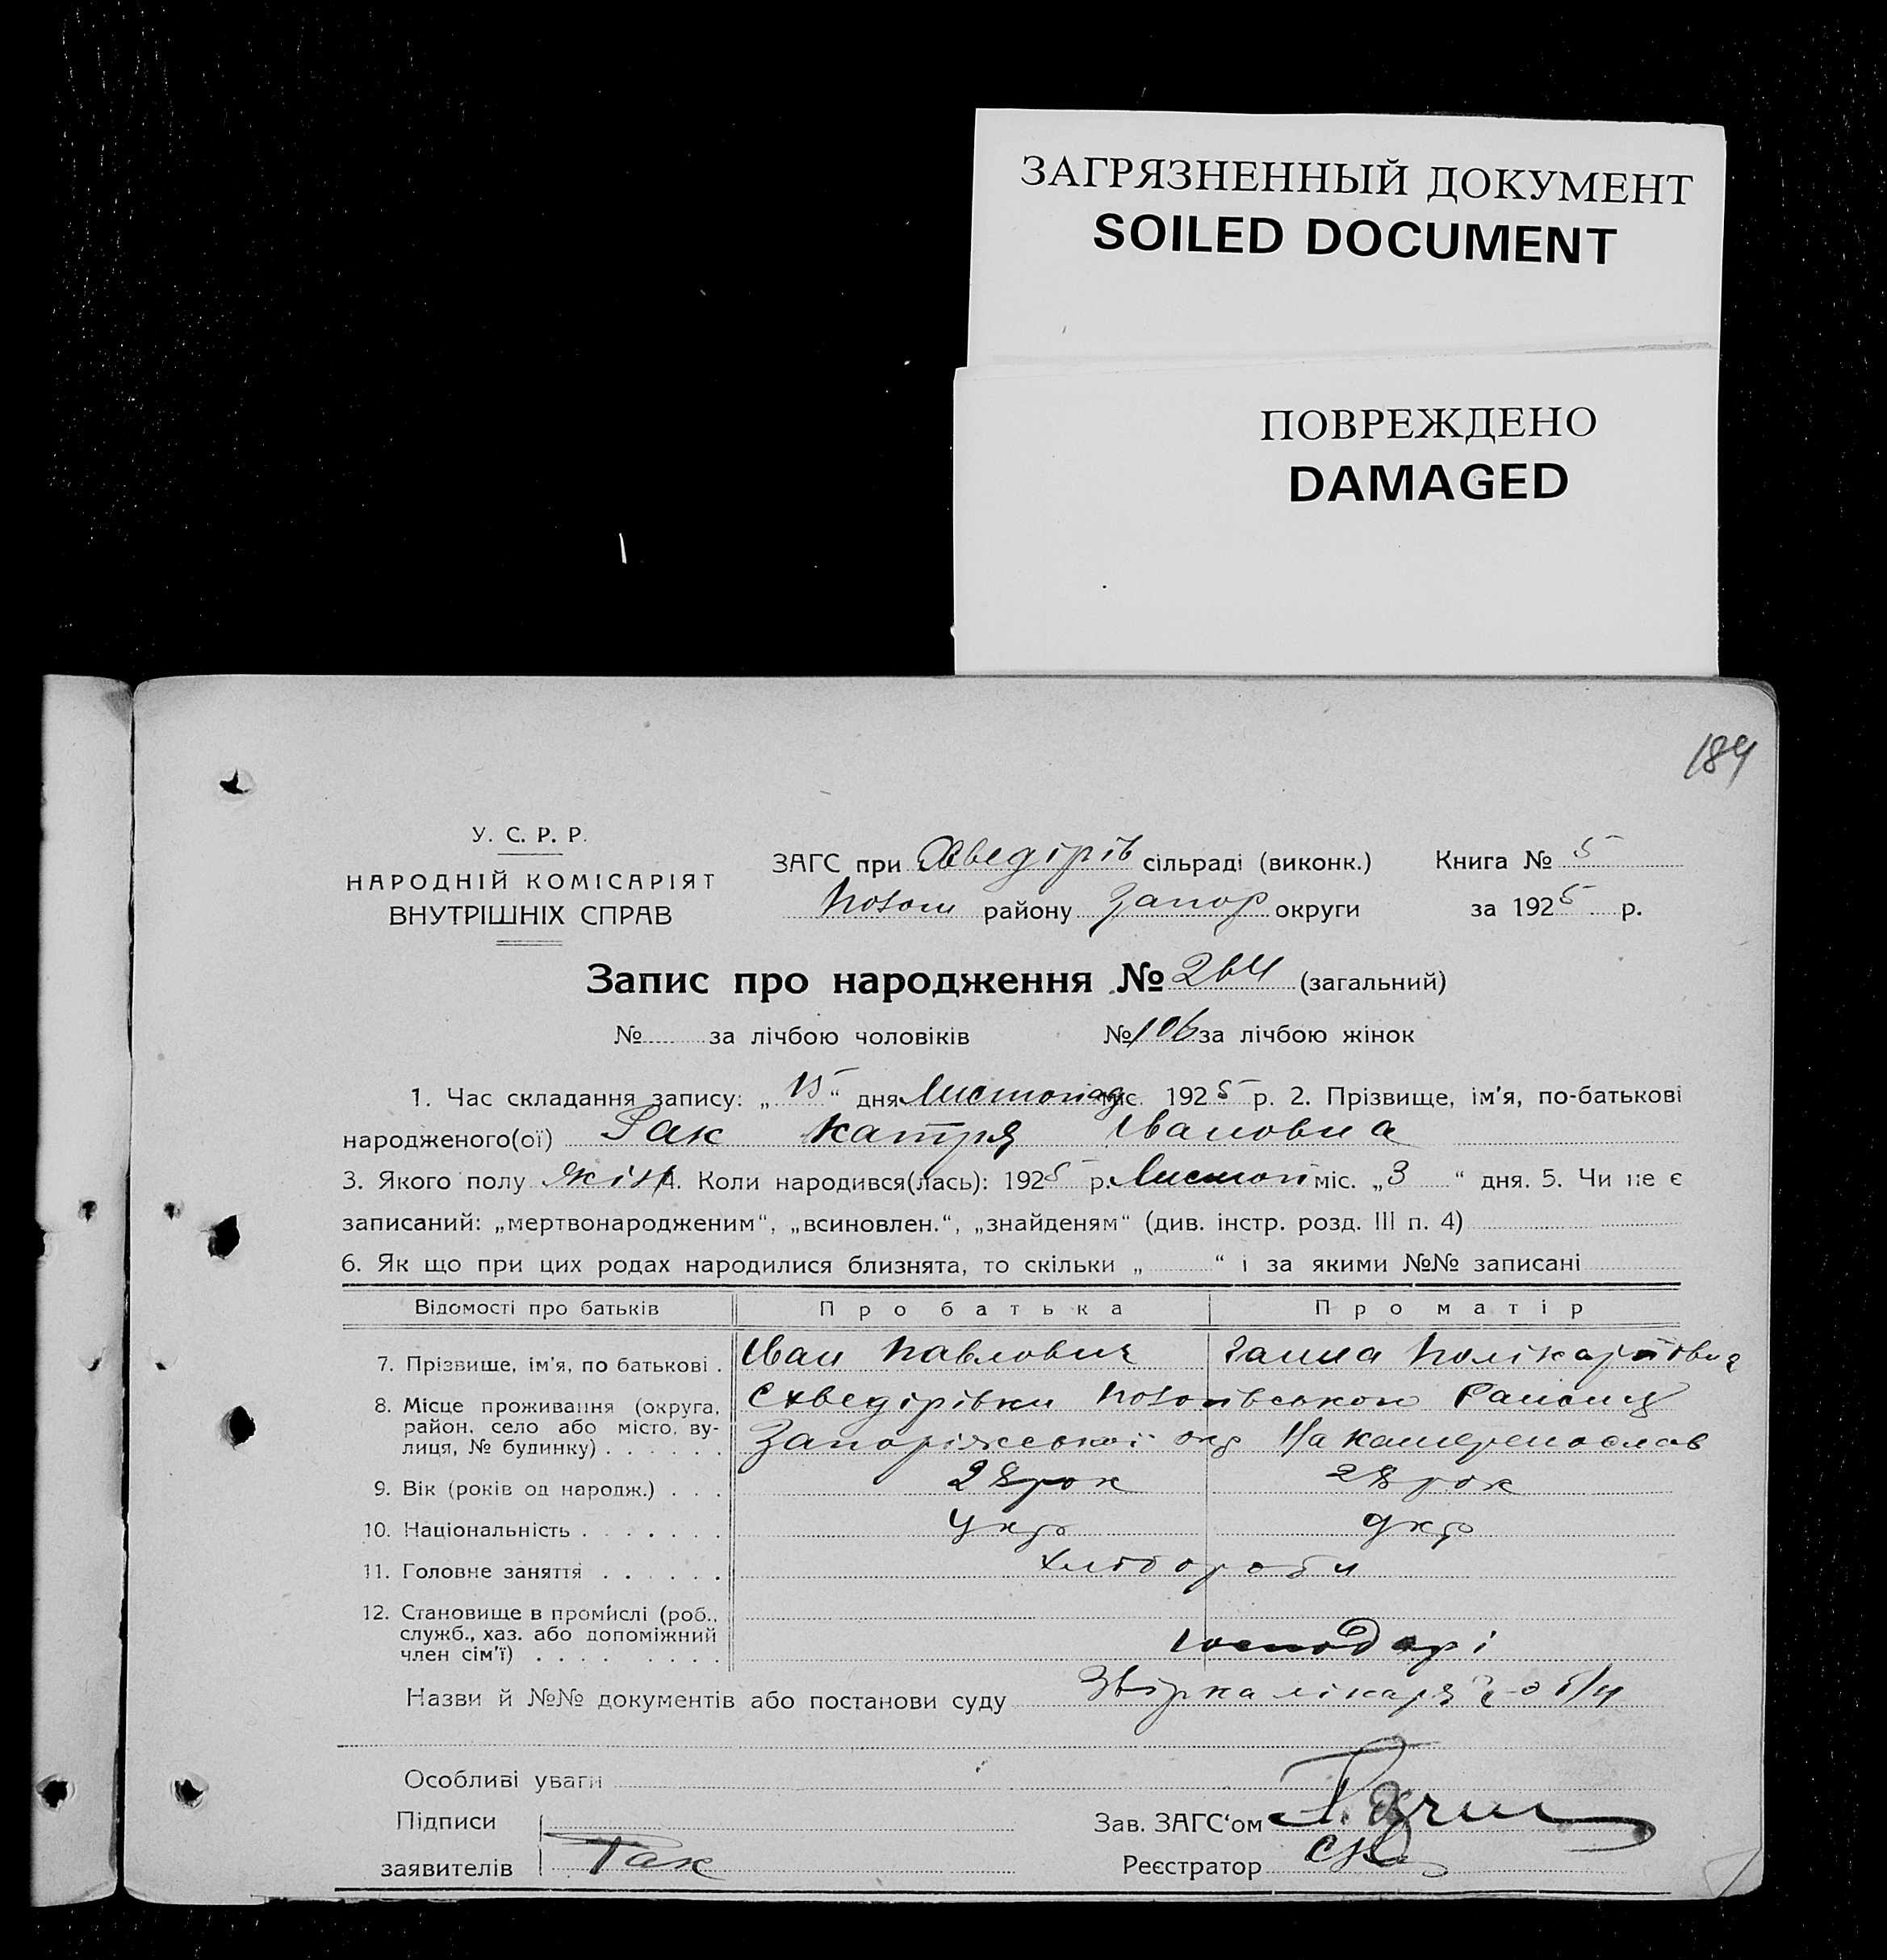 ЗАГРЯЗНЕННЫЙ ДОКУМЕНТ
SOILED DOCUMENT
ПОВРЕЖДЕНО
DAMAGED
184
У. С. Р. Р.
НАРОДНІЙ КОМІСАРІЯТ
ВНУТРІШНІХ СПРАВ
ЗАГС при Хведірів сільраді (виконк.) Книга № 5
району Запор округи за 1925 р.
Запис про народження № 264 (загальний)
№ за лічбою чоловіків № 106 за лічбою жінок
1. Час складання запису: „15“ дня Листопад міс. 1925 р. 2. Прізвище, ім'я, по-батькові
народженого(ої) Рак Катря Івановна
3. Якого полу жін 4. Коли народився(лась): 1925 р. Листоп міс. „3“ дня. 5. Чи не є
записаний: „мертвонародженим“, „всиновлен.“, „знайденям“ (див. інстр. розд. III п. 4)
6. Як що при цих родах народилися близнята, то скільки „ “ і за якими №№ записані
Відомості про батьків Про батька Про матір
7. Прізвише, ім'я, по батькові . Іван Павлович Ганна Полікарповна
8. Місце проживання (округа, район, село або місто, вулиця, № будинку) . . . . . . С Хведірівки
Запоріжської окр
9. Вік (років од народж.) . . . 28 рок 28 рок
10. Національність . . . . . . . Укр Укр
11. Головне заняття . . . . . . Хлібороби
12. Становище в промислі (роб., служб., хаз. або допоміжний член сім'ї) . . . . . . . . Господарі
Назви й №№ документів або постанови суду лікаря
Особливі уваги
Підписи
Зав. ЗАГС'ом
заявителів Рак
Реєстратор